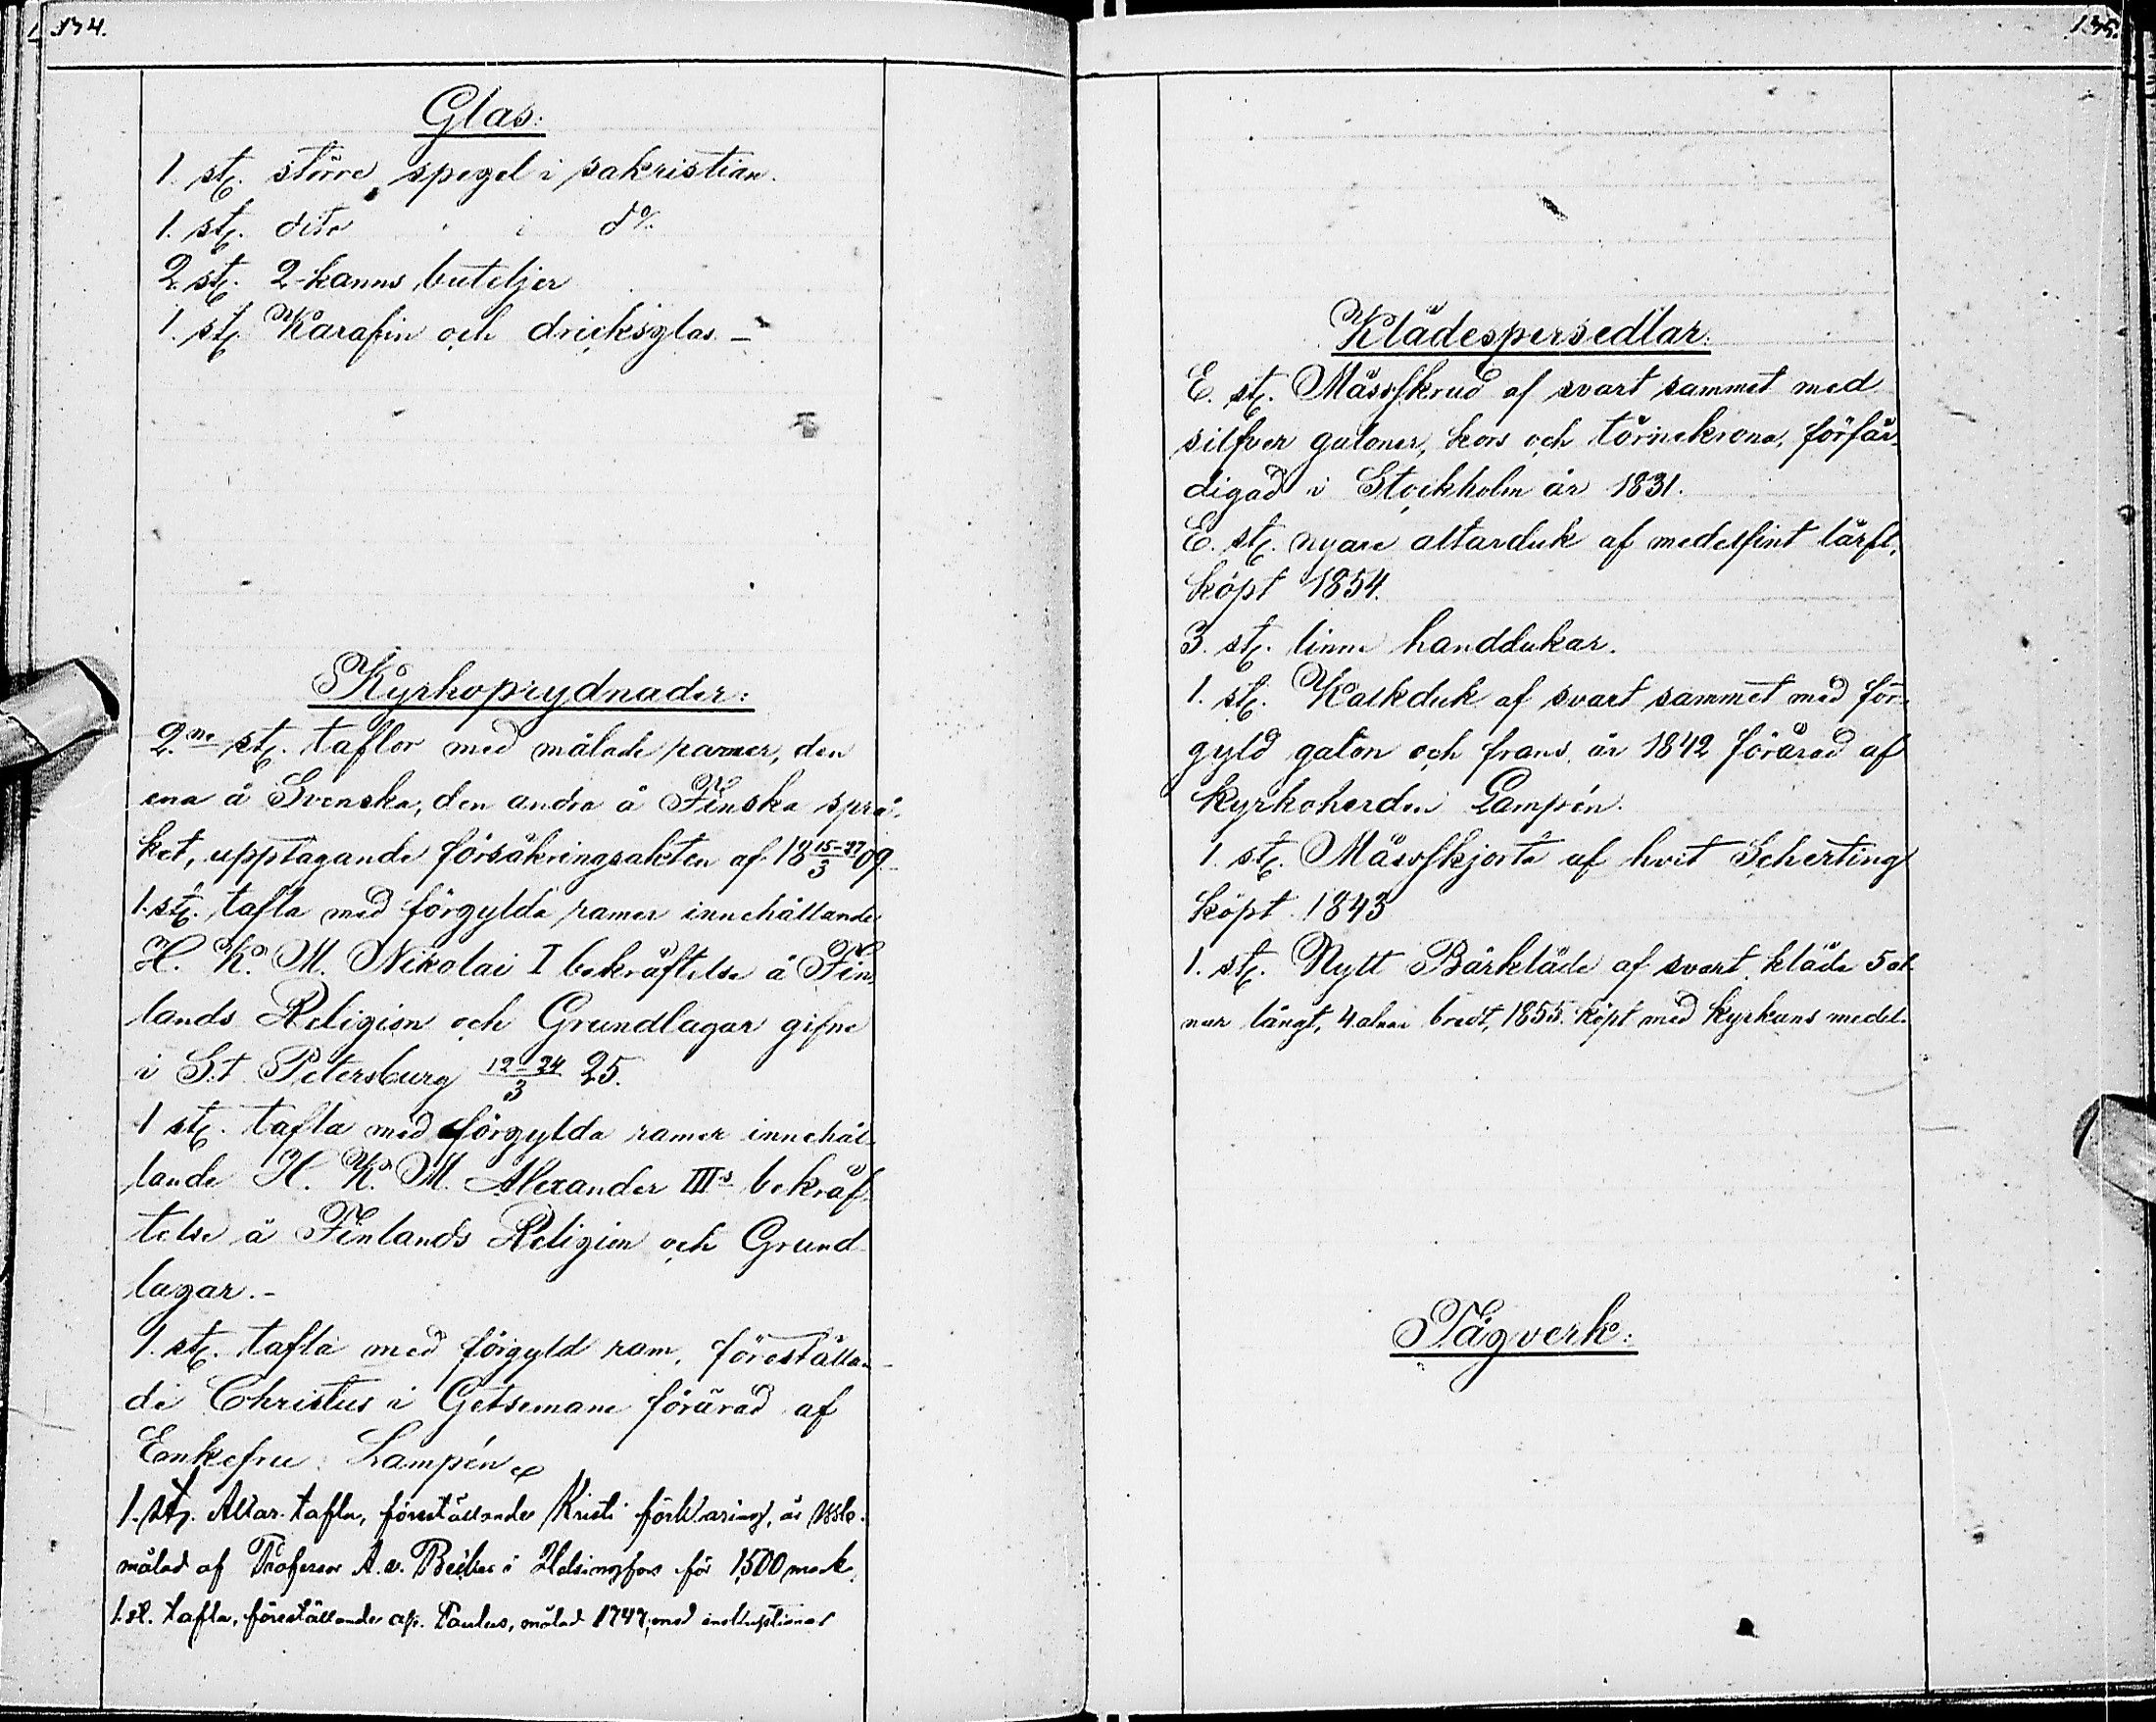 134.
Glas:
1. st. större spegel i sakristian.
1. st. dito i do.
2. st. 2-kanns buteljer
1. st. Karafin och dricksglas. –
Kyrkoprydnader:
2.ne st. taflor med målade ramar, den
ena å Svenska, den andra å Finska språ-
ket, upptagande försäkringsakten af 18 15-27/3 09.
1. st. tafla med förgylda ramer innehållande
H. K. M. Nikolai I bekräftelse å Fin-
lands Religion och Grundlagar gifne
i S:t Petersburg 12-24/3 25.
1 st. tafla med förgylda ramer innehål-
lande H. K. M. Alexander III:s bekräf-
telse å Finlands Religion och Grund-
lagar. –
1. st. tafla med förgyld ram, föreställan-
de Christus i Getsemane förärad af
Enkefru Lampén
1. st. Altar-tafla, föreställande Kristi förklaring, år
målad af Professor A. v. Becker i Helsingfors för 1,500 mark.
1. st. tafla, föreställande ap. Paulus, målad 1747, med
135.
Klädespersedlar:
E. st. Mässskrud af svart sammet med
silfver galoner, kors och törnekrona, förfär-
digad i Stockholm år 1831.
E. st. nyare altarduk af medelfint lärft,
köpt 1854.
3. st. linne handdukar.
1. st. Kalkduk af svart sammet med för-
gyld galon och frans, år 1842 förärad af
Kyrkoherden Lampén.
1. st. Mässskjorta af hvit Scherting
köpt 1843
1. st. Nytt Bårkläde af svart kläde 5 al-
nar långt, 4 alnar bredt, 1855. köpt med kyrkans medel.
Tågverk: